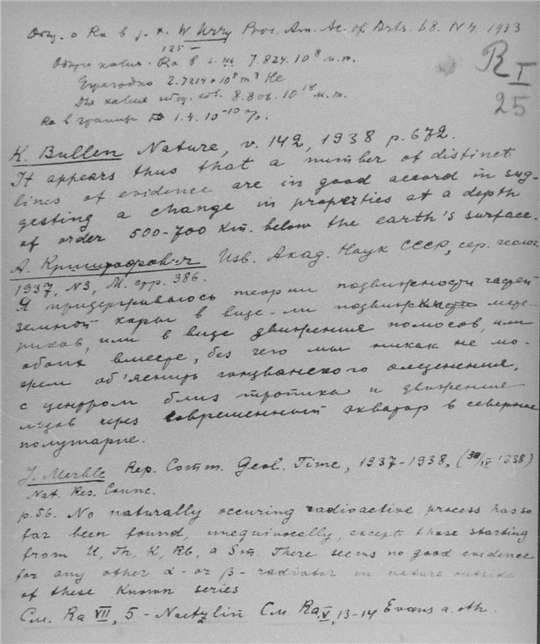 W Urry Proc. Am. Ac. of Arts. 68. N4. 1933
Ra в 7.824. 10⁸
2.7214 × 10⁸ m³ He
10¹⁸
Ra в граните 1.4. 10⁻¹⁰ %.
R I
25
K. Bullen Nature, v. 142, 1938 p. 672.
It appears thus that a number of distinct
lines of evidence are in good accord in sug-
gesting a change in properties at a depth
of order 500-700 Km. below the earth's surface.
А. Криштофович Изв. Акад. Наук СССР, сер. геолог.
1937, N3, М. стр. 386.
Я придерживаюсь теории подвижности частей
земной коры в виде-ли подвижности мате-
риков, или в виде движения полюсов, или
обоих вместе, без чего мы никак не мо-
жем об'яснить гондванского оледенения,
с центром близ тропика и движение
льдов через современный экватор в северное
полушарие.
J. Merble Rep. Comm. Geol. Time, 1937-1938, (30/IV 1938)
Nat. Res. Counc.
p. 56. No naturally occuring radioactive process has so
far been found, unequivocally, except those starting
from U, Th, K, Rb, a Sm. There seems no good evidence
for any other α- or β- radiator in nature outside
of these known series
См. Ra VII, 5 - См. Ra V, 13-14 Evans a. oth.